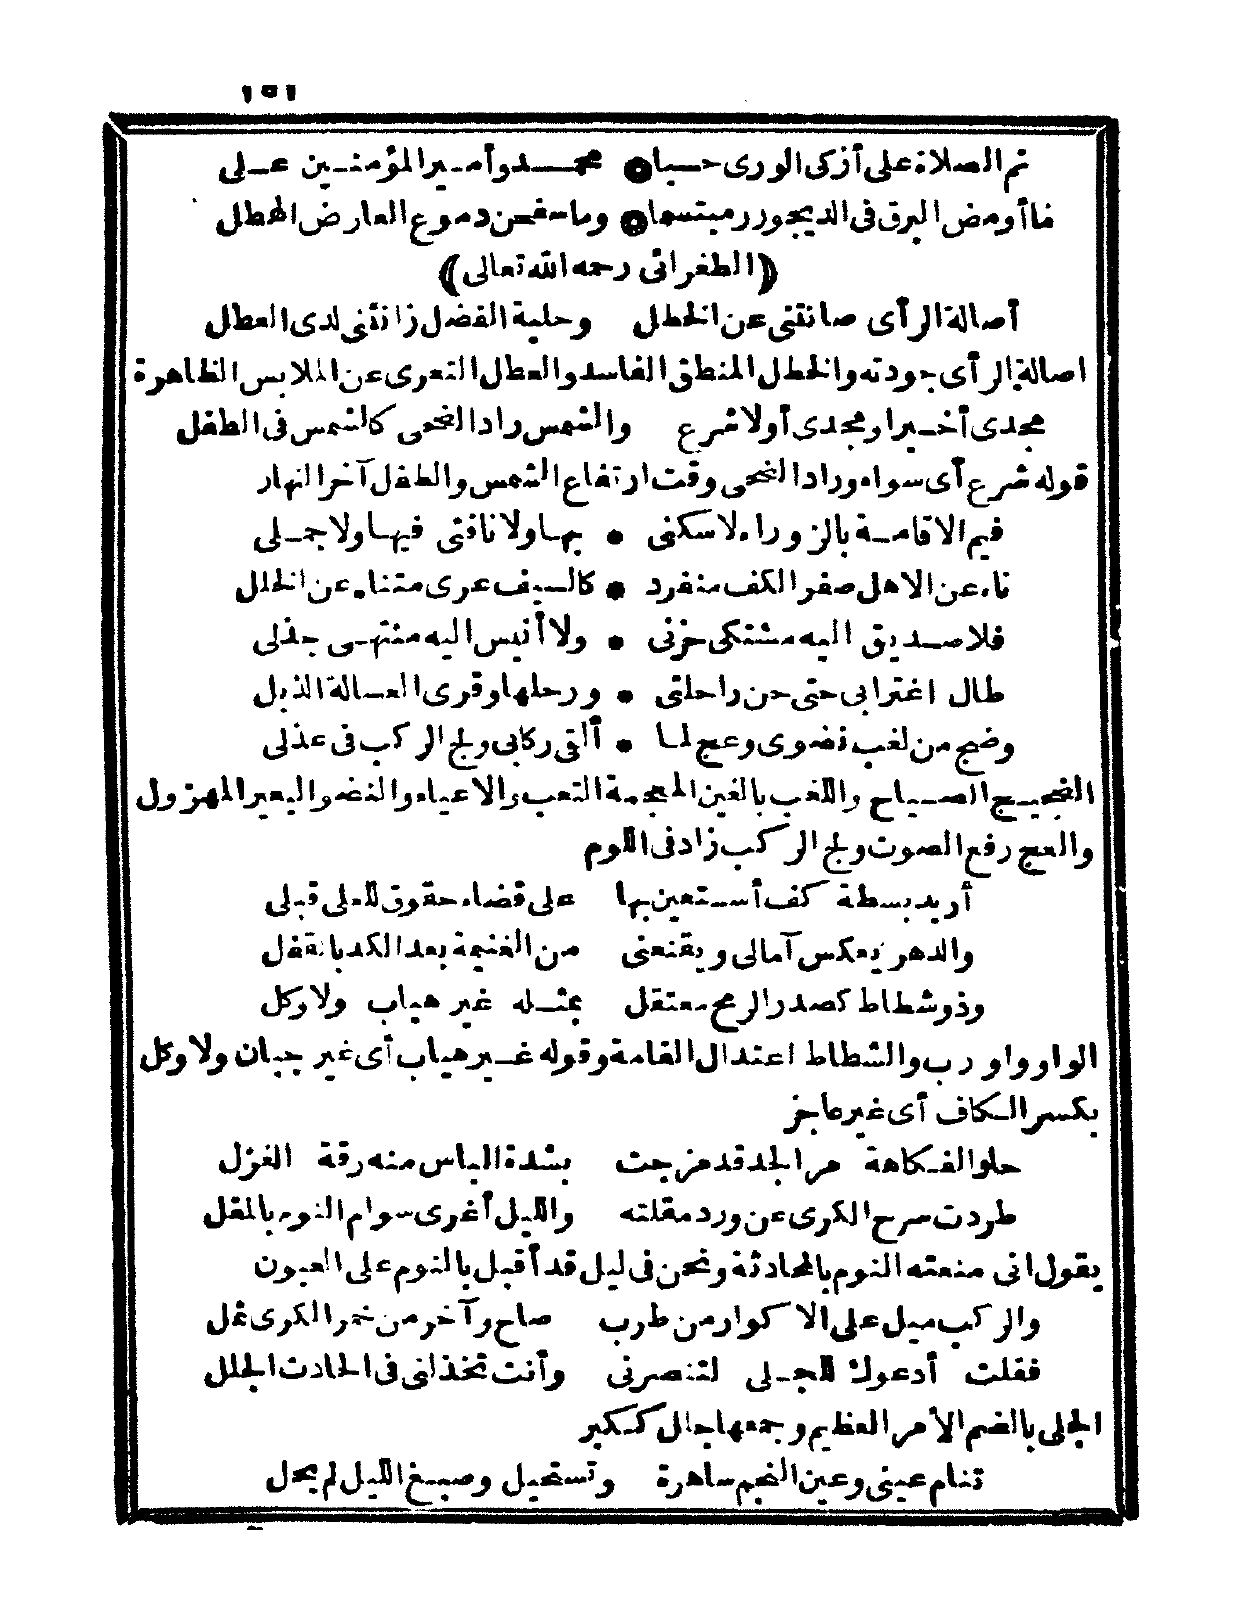 ١٥١
ثم الصلاة على أزكى الورى حسبا ❁ محمد وأمير المؤمنين على
ما أومض البرق فى الديجور مبتسما ❁ وما سفحن دموع العارض الهطل
﴿الطغرائى رحمه الله تعالى﴾
أصالة الرأى صانتنى عن الخطل وحلية الفضل زانتنى لدى العطل
اصالة الرأى جودته والخطل المنطق الفاسد والعطل التعرى عن الملابس الظاهرة
مجدى أخيرا ومجدى أولا شرع والشمس راد الضحى كالشمس فى الطفل
قوله شرع أى سواء وراد الضحى وقت ارتفاع الشمس والطفل آخر النهار
فيم الاقامة بالزوراء لا سكنى • بها ولا ناقتى فيها ولا جملى
ناء عن الاهل صفر الكف منفرد • كالسيف عرى متناه عن الخلل
فلا صديق اليه مشتكى حزنى • ولا أنيس اليه منتهى جذلى
طال اغترابى حتى حن راحلتى • ورحلها وقرى العسالة الذبل
وضج من لغب نضوى وعج لما • ألقى ركابى ولج الركب فى عذلى
الضجيج الصياح واللغب بالغين المعجمة التعب والاعياء والنضو البعير المهزول
والعج رفع الصوت ولج الركب زاد فى اللوم
أريد بسطة كف أستعين بها على قضاء حقوق للعلى قبلى
والدهر يعكس آمالى ويقنعنى من الغنيمة بعد الكد بالقفل
وذو شطاط كصدر الرمح معتقل بمثله غير هياب ولا وكل
الواو واو رب والشطاط اعتدال القامة وقوله غير هياب أى غير جبان ولا وكل
بكسر الكاف أى غير عاجز
حلو الفكاهة مر الجد قد مزجت بشدة الباس منه رقة الغزل
طردت سرح الكرى عن ورد مقلته والليل أغرى سوام النوم بالمقل
يقول انى منعته النوم بالمحادثة ونحن فى ليل قد أقبل بالنوم على العيون
والركب ميل على الاكوار من طرب صاح وآخر من خمر الكرى ثمل
فقلت أدعوك للجلى لتنصرنى وأنت تخذلنى فى الحادث الجلل
الجلى بالضم الأمر العظيم وجمعها جلل ككبر
تنام عينى وعين النجم ساهرة وتستحيل وصبغ الليل لم يحل